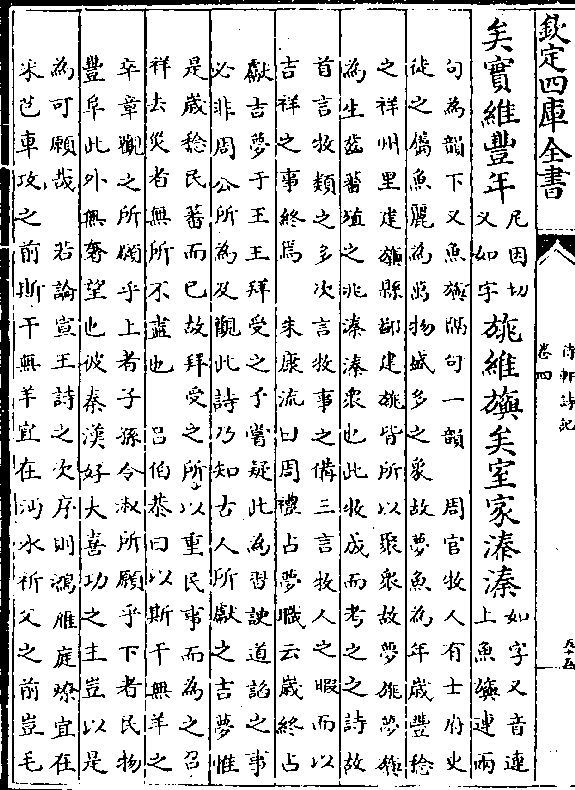 欽定四庫全書
待軒詩記
卷四
五十五
矣實維豐年尼因切又如字旐維旟矣室家溱溱如字又音連上魚旟連兩
句為韻下又魚旟隅句一韻 周官牧人有士府史
徒之屬魚麗為萬物盛多之象故夢魚為年歲豐稔
之祥州里建旟縣鄙建旐皆所以聚衆故夢旐夢旟
為生齒蕃殖之兆溱溱衆也此收成而考之之詩故
首言牧類之多次言牧事之備三言牧人之暇而以
吉祥之事終焉 朱康流曰周禮占夢職云歲終占
獻吉夢于王王拜受之予嘗疑此為習諛道諂之事
必非周公所為及觀此詩乃知古人所獻之吉夢惟
是歲稔民蕃而已故拜受之所以重民事而為之召
祥去災者無所不盡也 呂伯恭曰以斯干無羊之
卒章觀之所願乎上者子孫令淑所願乎下者民物
豐阜此外無奢望也彼秦漢好大喜功之主豈以是
為可願哉 若論宣王詩之次序則鴻雁庭燎宜在
采芑車攻之前斯干無羊宜在沔水祈父之前豈毛